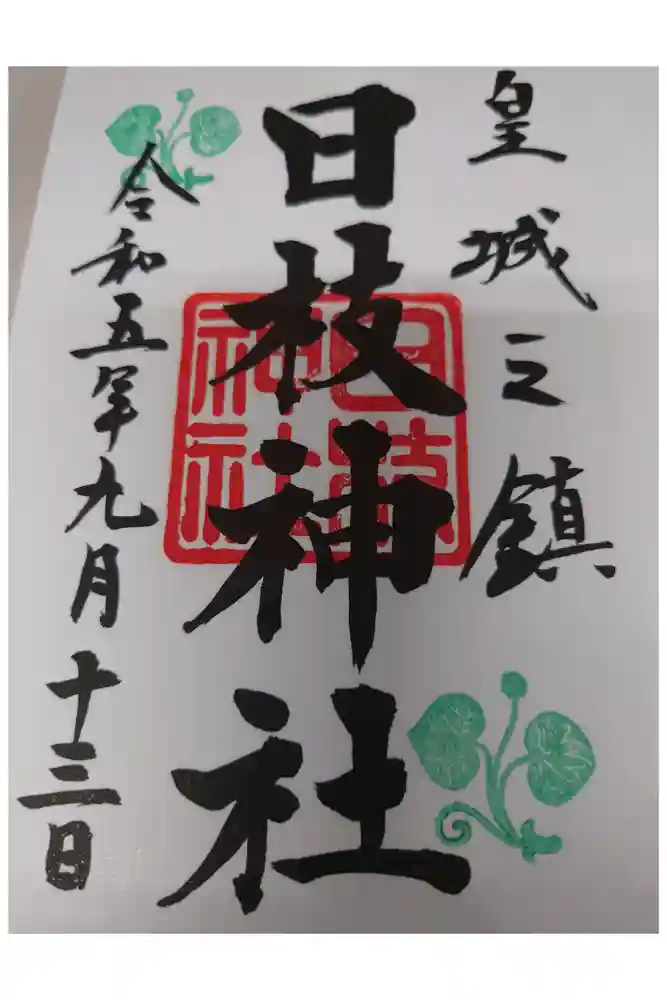 皇城之鎮
日枝神社
日枝
神社
令和五年九月十三日